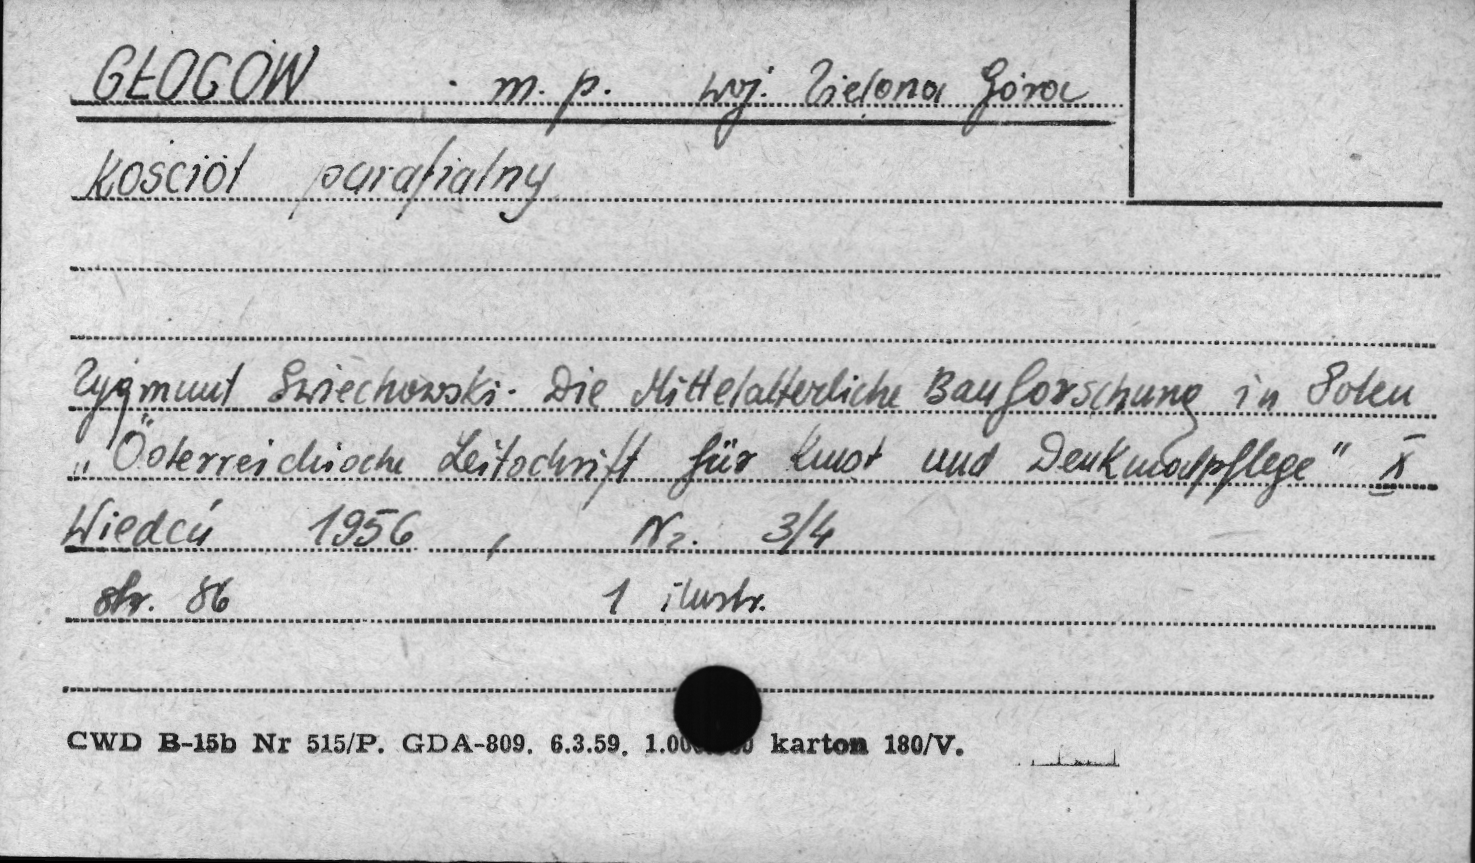 GŁOGÓW m. p. woj. Zielona Góra
Kościół parafialny
Zygmunt Świechowski. Die Mittelalterliche Bauforschung in Polen
„Österreichische Zeitschrift für Kunst und Denkmalpflege" X
Wiedeń 1956, Nr. 3/4
str. 86 1 ilustr.
CWD B-15b Nr 515/P. GDA-809. 6.3.59. karton 180/V.